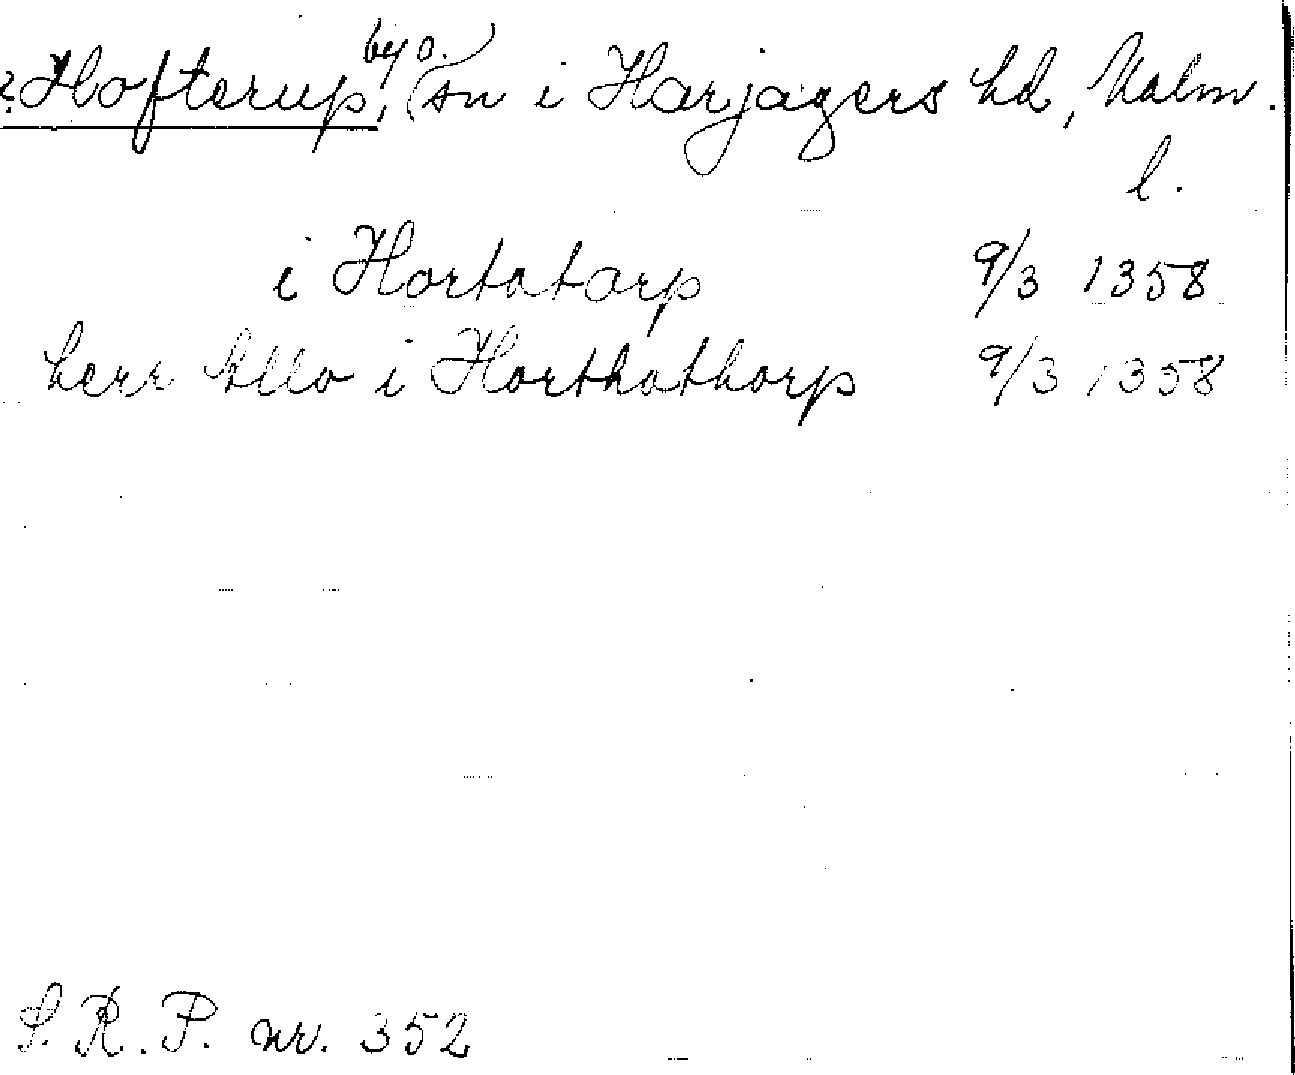 ?Hofterup, by o. (sn i Harjagers hd, Malm.
l.
i Hortatorp 9/3 1358
herr Allo i Horthathorp 9/3 1358
S. R. P. nr. 352